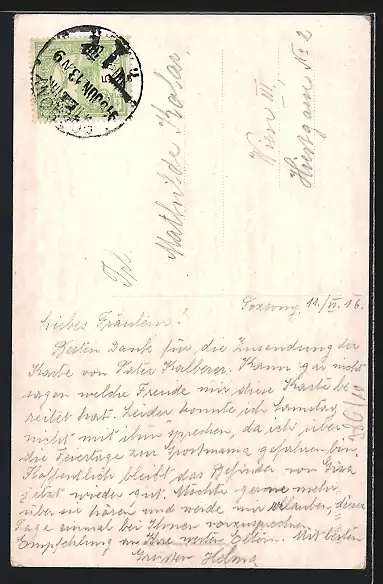 Frl.
Mathilde Kolar
Wien III,
Hiessgasse No 2
Pozsony, 11./VI. 16.
Liebes Fräulein!
Besten Dank für die Zusendung der
Karte von Pater Kalberer. Kann gar nicht
sagen welche Freude mir diese Karte be
reitet hat. Leider konnte ich Samstag
nicht mit ihm sprechen, da ich über
die Feiertage zur Großmama gefahren bin.
Hoffentlich bleibt das Befinden von
jetzt wieder gut. Möchte gerne mehr
über sie hören und werde mir erlauben, dieser
Tage einmal bei Ihnen vorzusprechen.
Empfehlung an Ihre werten Eltern. Mit besten
Grüßen Helma
POZSONY
916 JUN 13 N 9